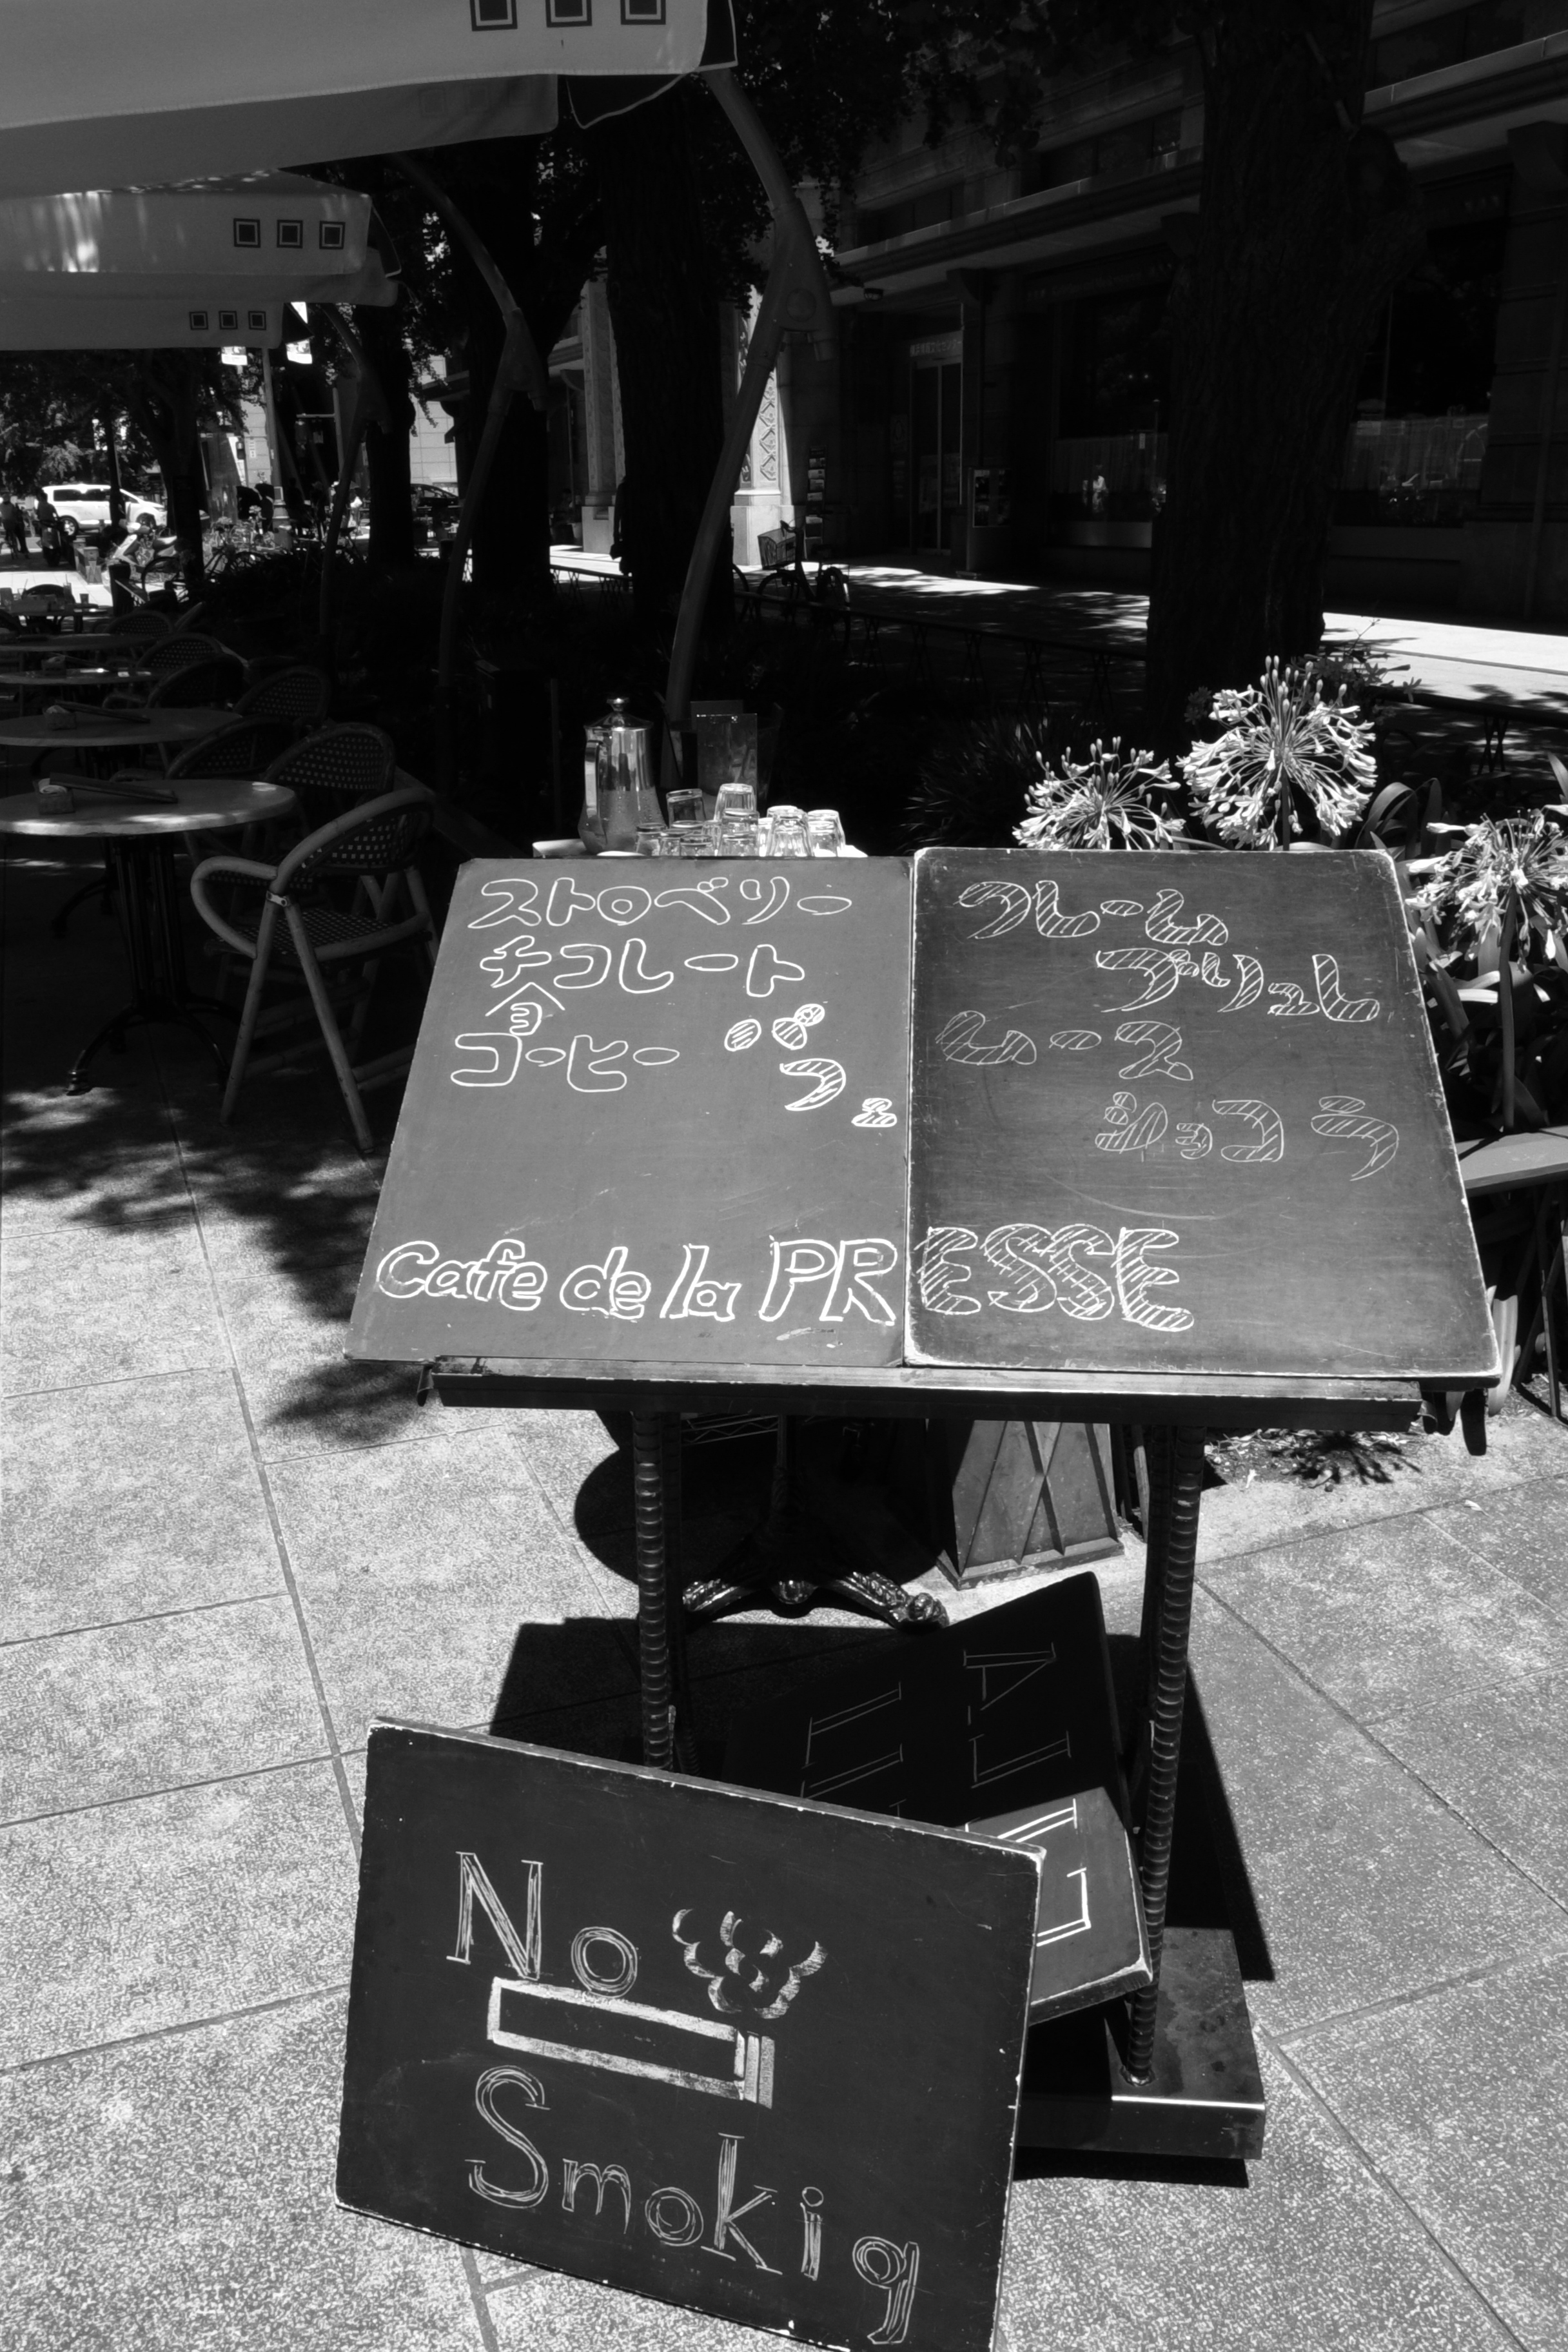 ストロベリー
チョコレート
コーヒー
パフェ
クレーム
ブリュレ
ムース
ショコラ
Cafe de la PRESSE
No
Smokig